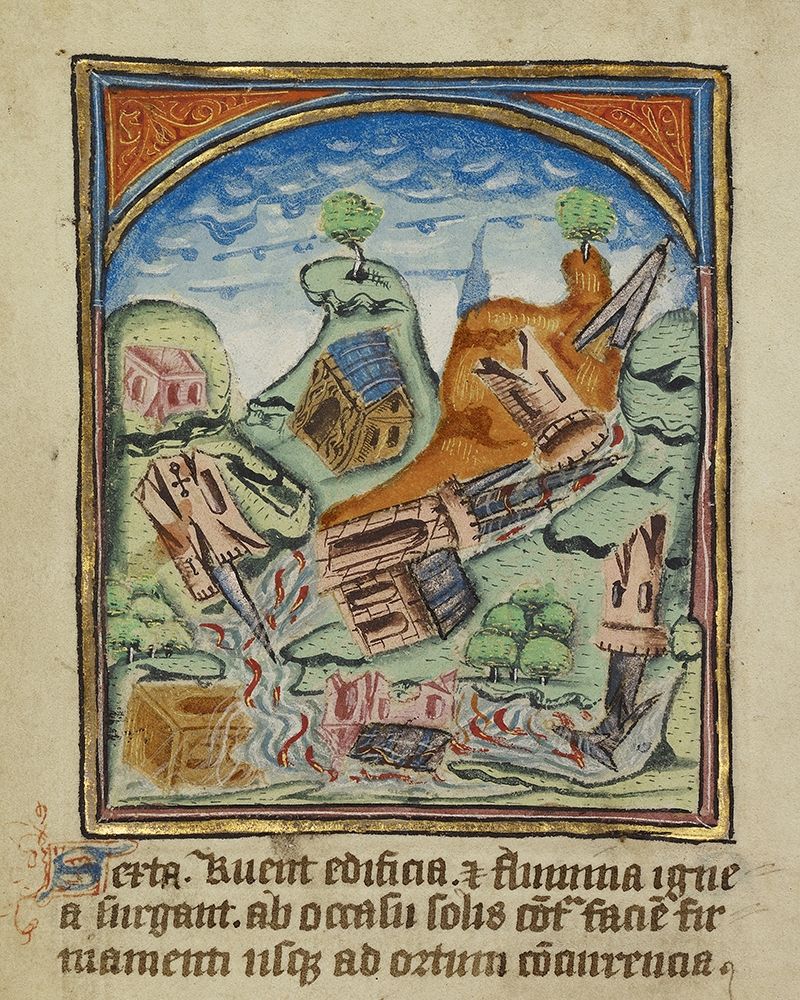 Sexta. Ruent edificia. ⁊ flumina igne
a surgant. ab occasu solis cōt͛ faciē fir
mamenti usqꝫ ad ortum cōcurrencia.